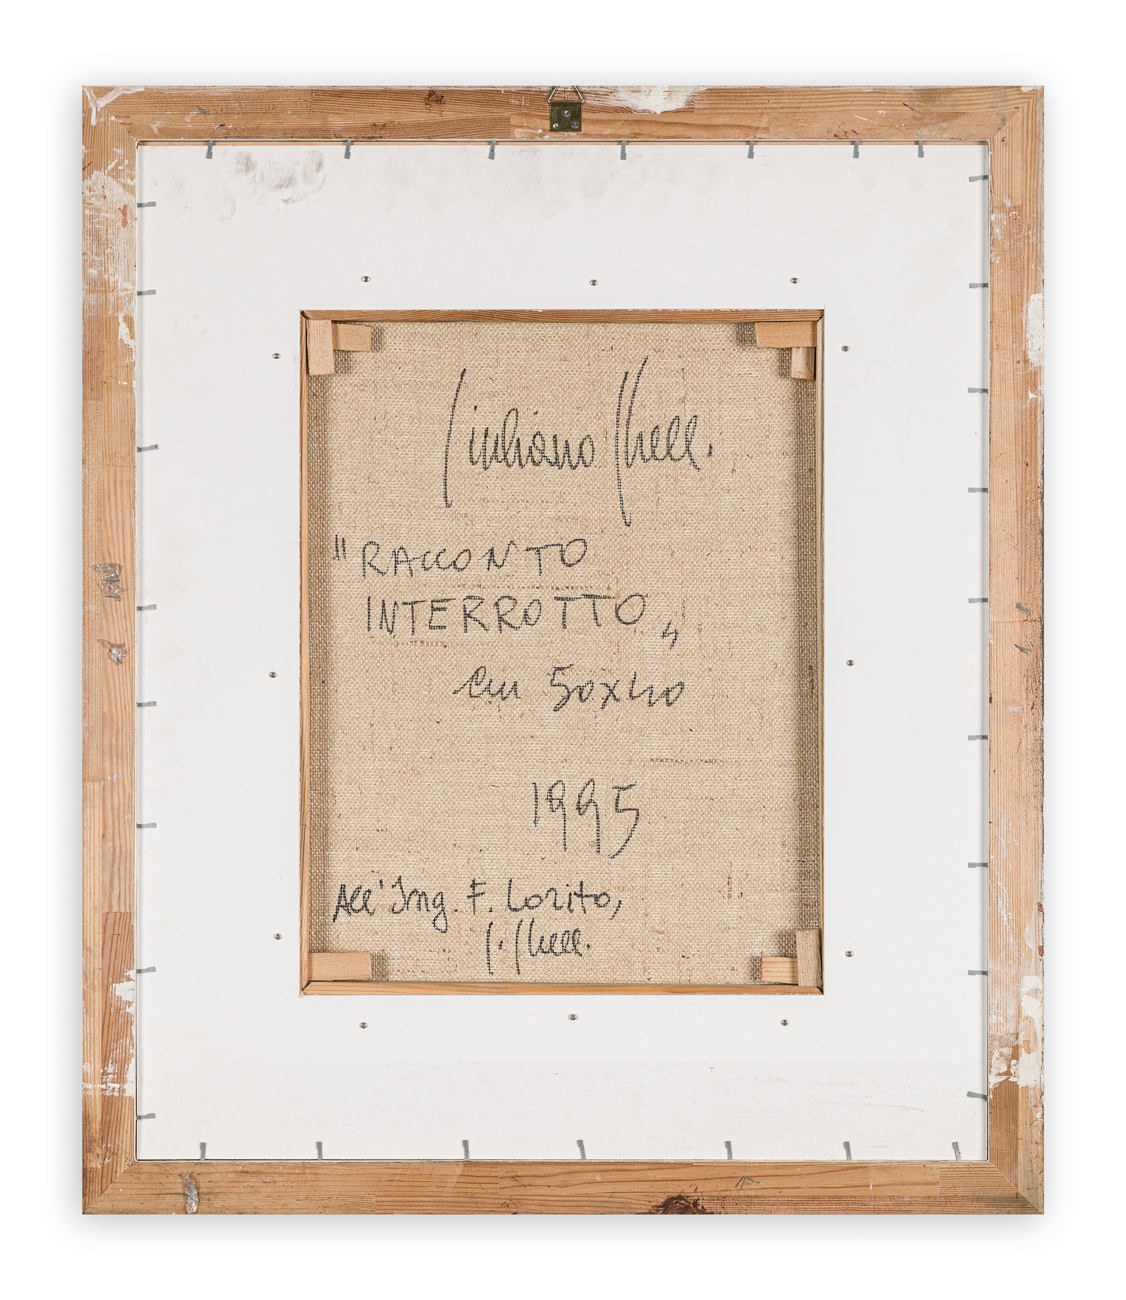 Giuliano Ghelli.
"RACCONTO
INTERROTTO„
cm 50x40
1995
All'Ing. F. Lorito,
G. Ghelli.